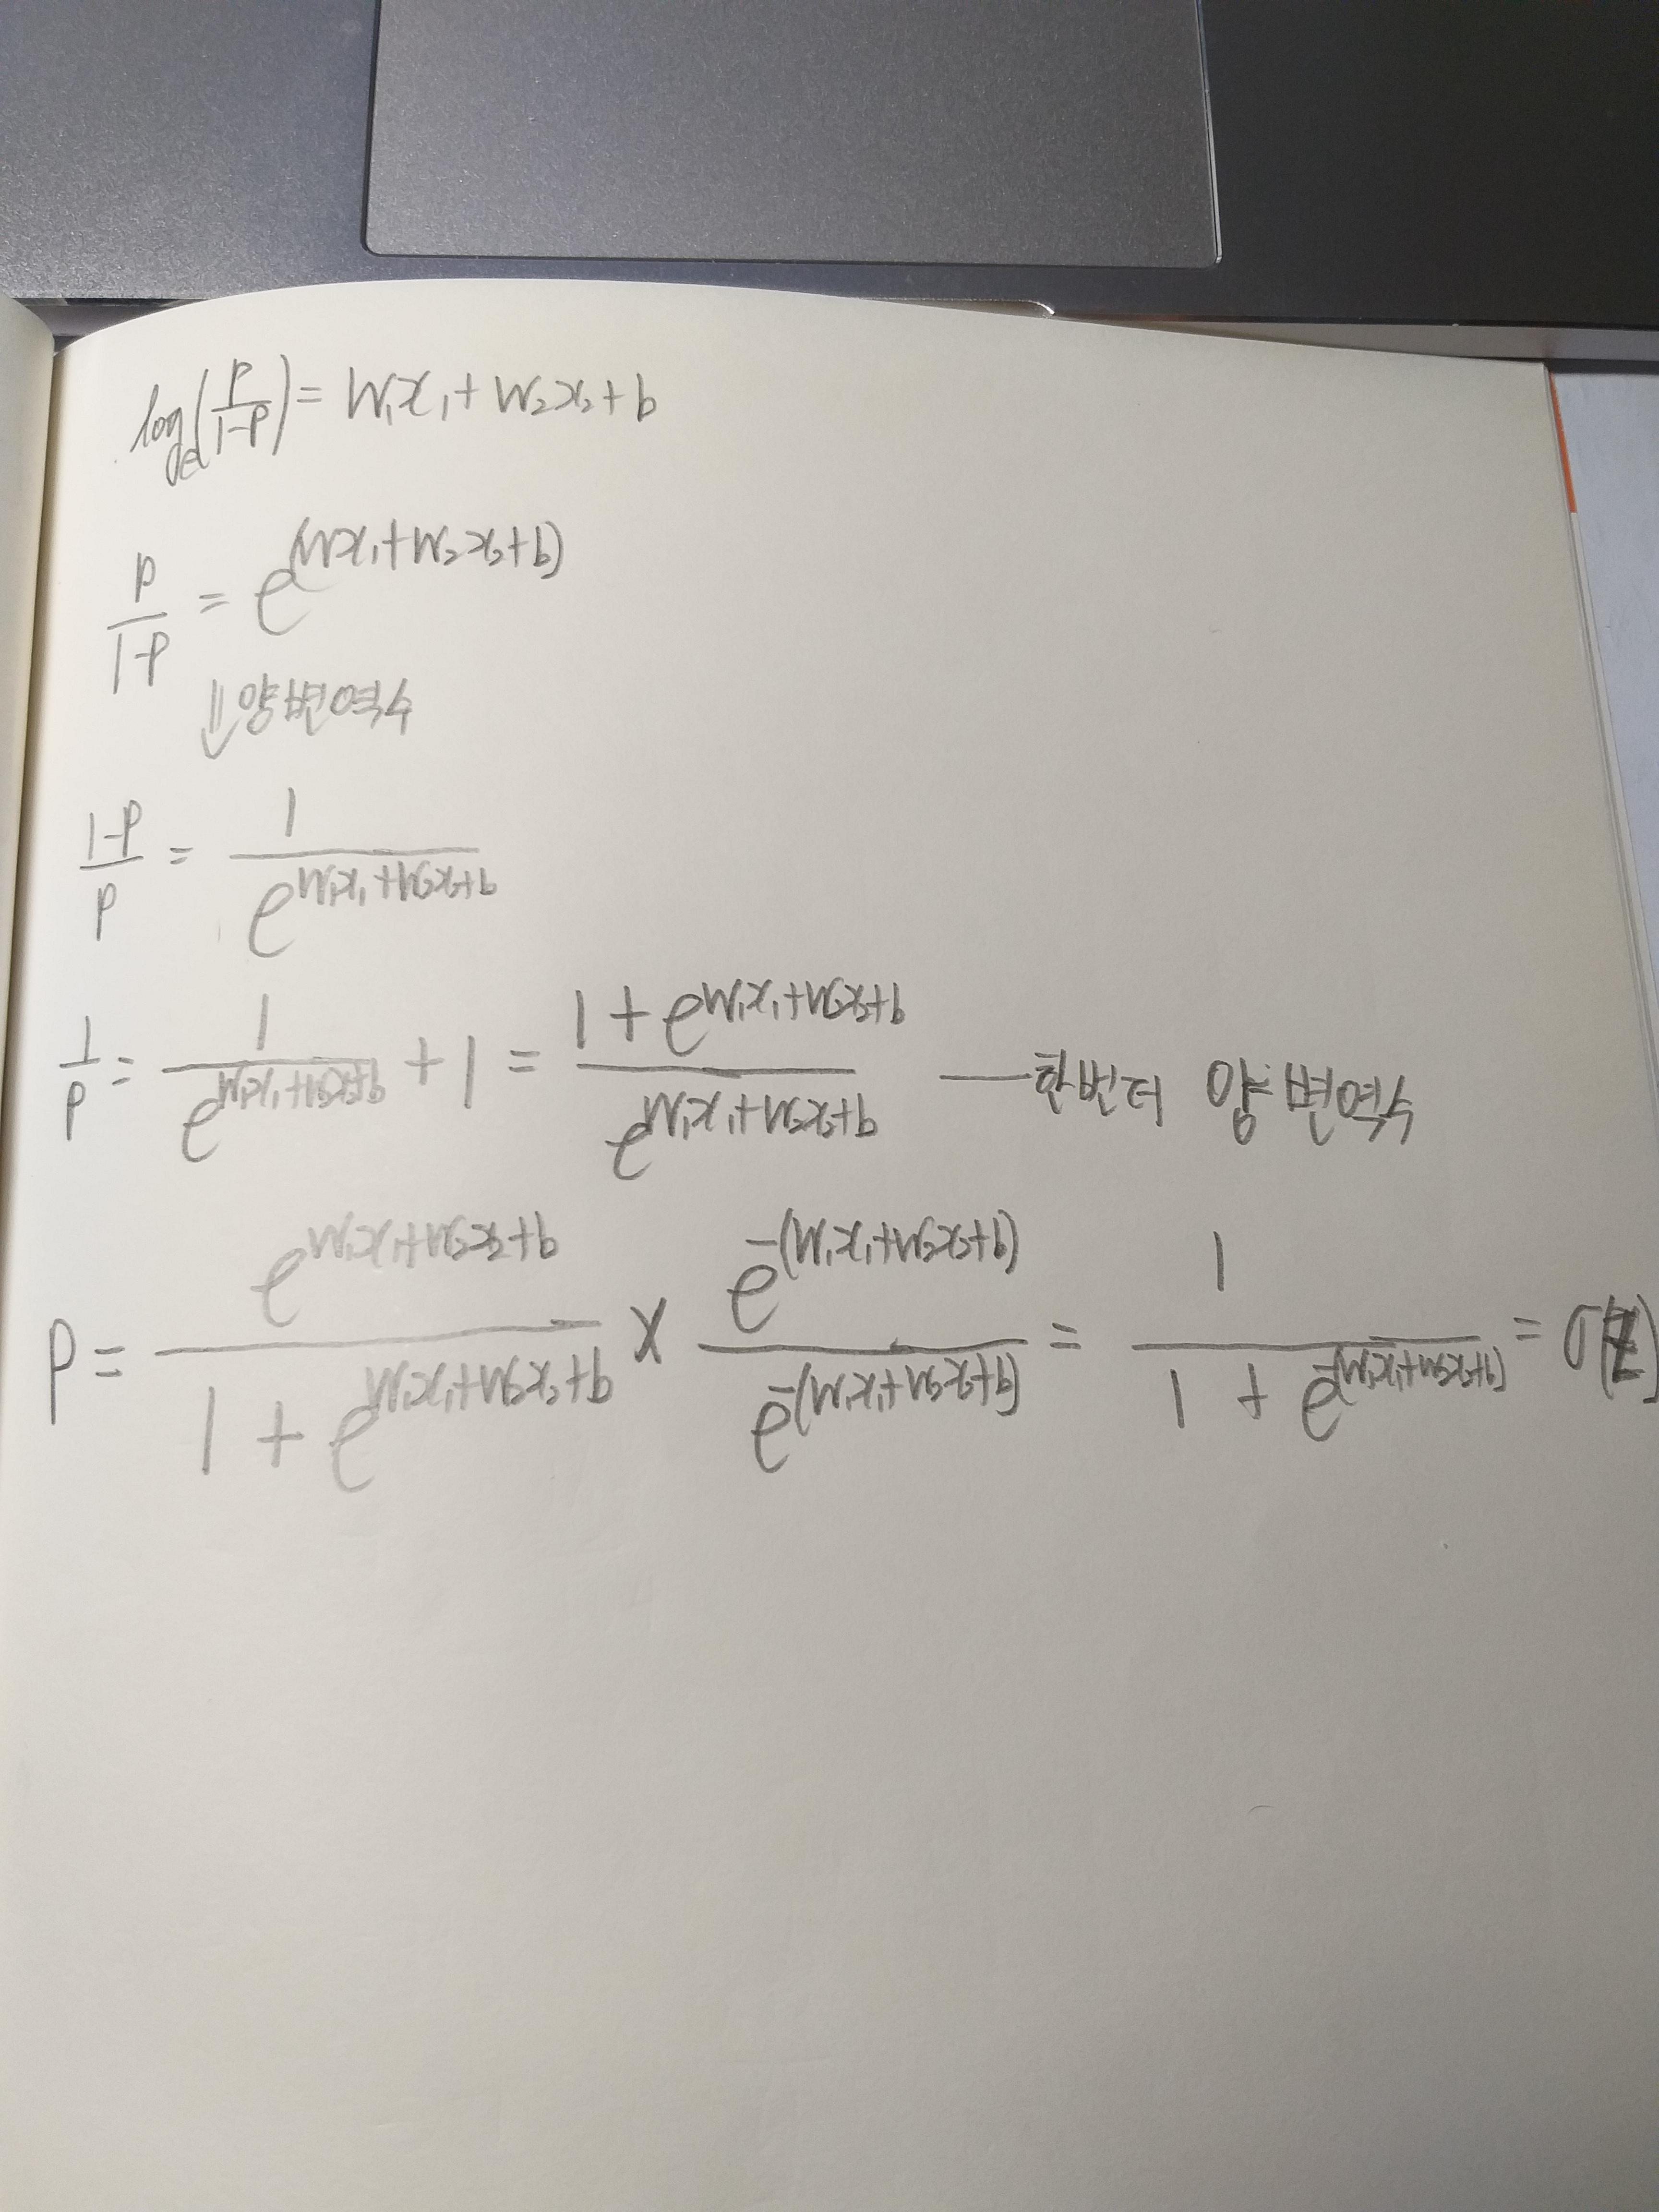 logₑ(p/(1-p)) = W₁x₁ + W₂x₂ + b
p/(1-p) = e^(Wx₁+W₂x₂+b)
⇓ 양변역수
(1-p)/p = 1/e^(W₁x₁+W₂x₂+b)
1/p = 1/e^(W₁x₁+W₂x₂+b) + 1 = (1 + e^(W₁x₁+W₂x₂+b))/e^(W₁x₁+W₂x₂+b) — 한번더 양변역수
P = e^(W₁x₁+W₂x₂+b)/(1 + e^(W₁x₁+W₂x₂+b)) × e^-(W₁x₁+W₂x₂+b)/e^-(W₁x₁+W₂x₂+b) = 1/(1 + e^-(W₁x₁+W₂x₂+b)) = σ(z)